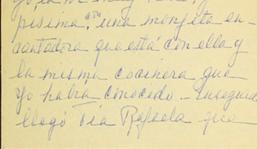 písima. una monjita en-
cantadora que está con ella y
la misma cocinera que
yo había conocido - enseguida
llegó Tía Rafaela que